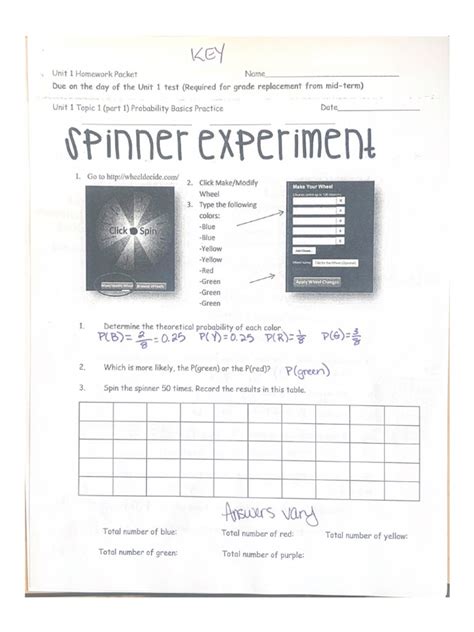 KEY
Unit 1 Homework Packet Name
Due on the day of the Unit 1 test (Required for grade replacement from mid-term)
Unit 1 Topic 1 (part 1) Probability Basics Practice Date
Spinner Experiment
1. Go to http://wheeldecide.com/
Click Spin
2. Click Make/Modify
Wheel
3. Type the following
colors:
-Blue
-Blue
-Yellow
-Yellow
-Red
-Green
-Green
-Green
Make Your Wheel
Apply Wheel Changes
1. Determine the theoretical probability of each color.
P(B)= 2/8 = 0.25 P(Y)=0.25 P(R)=1/8 P(G)=3/8
2. Which is more likely, the P(green) or the P(red)? P(green)
3. Spin the spinner 50 times. Record the results in this table.
Answers vary
Total number of blue: Total number of red: Total number of yellow:
Total number of green: Total number of purple: